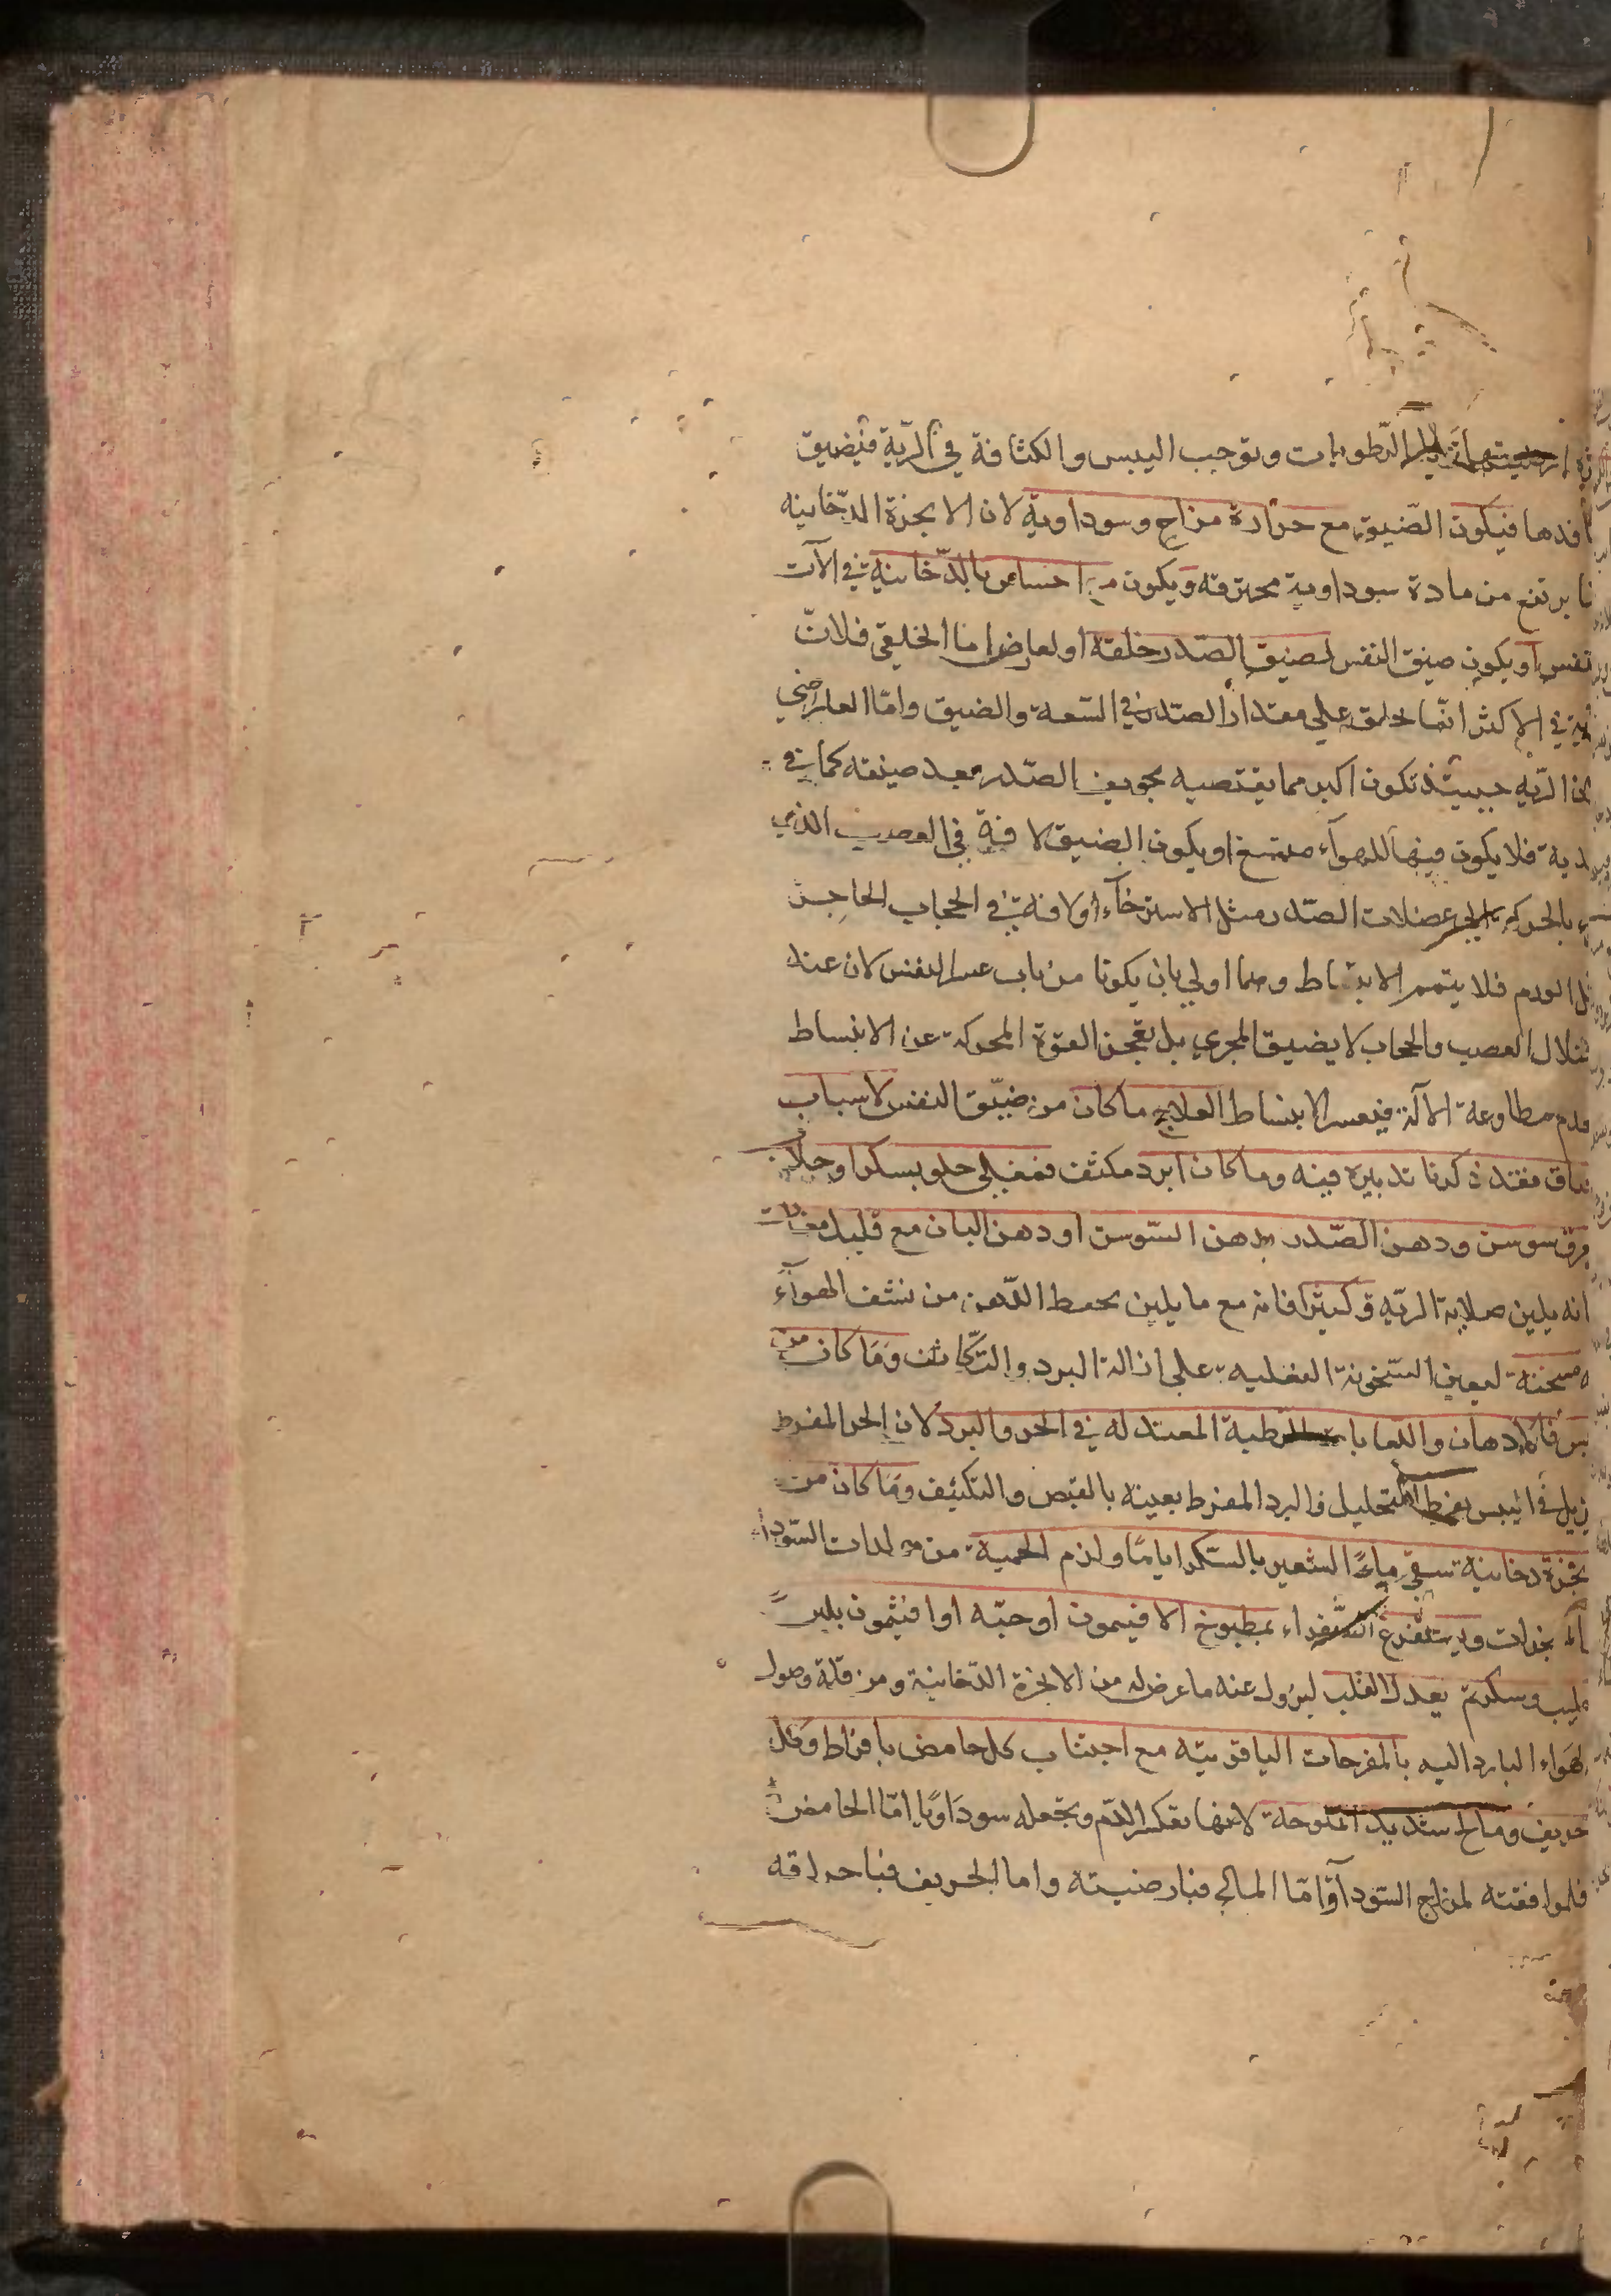 الرّطوبات وتوجب اليبس والكثافة في الريّة فيضيق
فيكون الضّيق مع حرارة مزاج وسوداوية لان الابخرة الدّخانيه
يرتفع من مادة سوداوية محترقه ويكون مع احساس بالدّخانية في الآت
او يكون ضيق النفس لضيق الصّدر خلقة او لعارض اما الخلقي فلانّ
في الاكثر انّما تخلق علي مقدار الصّدر في السّعة والضيق وامّا العارضي
الريّه حينئذ تكون اكبر مما يقتضيه تجويف الصّدر بعد ضيقه كما في
فلا يكون فيها للهوآء متسع او يكون الضيق لافة في العصب الذي
بالحركة الي عضلات الصّدر مثل الاسترخآء او لافة في الحجاب الحاجز
الورم فلا يتمم الانبساط وهما اولي بان يكونا من باب عسر النفس لان عند
العصب والحجاب لا يضيق المجري بل تعجز القوة المحركة عن الانبساط
مطاوعة الآلة فيعسر الانبساط العلاج ما كان من ضيّق النفس لاسباب
فقد ذكرنا تدبيره فيه وما كان لبرد مكثف فمغلي حلو بسكر او جلاب
سوسن ودهن الصّدر بدهن السّوسن او دهن البان مع قليل
انه يلين صلابة الريّه وكثيرا فانه مع ما يلين يحفظ الدّهن من نشف الهوآء
لتعين السّخونة الفعليه علي ازالة البرد والتّكاثف وما كان من
فالادهان واللعابات الرطبة المعتدله في الحر والبرد لان الحر المفرط
في اليبس بفرط التحليل والبرد المفرط يعينه بالقبض والتكثيف وما كان من
دخانيه تسقي ماء الشعير بالسّكر اياما ولزم الحمية من مولدات السّوداء
ويستفرغ السّوداء بمطبوخ الافيمون او حبّه او افيثمون بلبن
وسكر ثم يعدل القلب ليزول عنه ما عرض له من الابخرة الدّخانية ومن قلة وصول
الهواء البارد اليه بالمفرحات الياقوتيّه مع اجتناب كل حامض بافراط وكل
حريف ومالح شديد الملوحة لانها تعكر الدّم وتجعله سوداويّا امّا الحامض
فلموافقته لمزاج السّودآء وامّا المالح فبارضيته واما الحريف فباحراقه